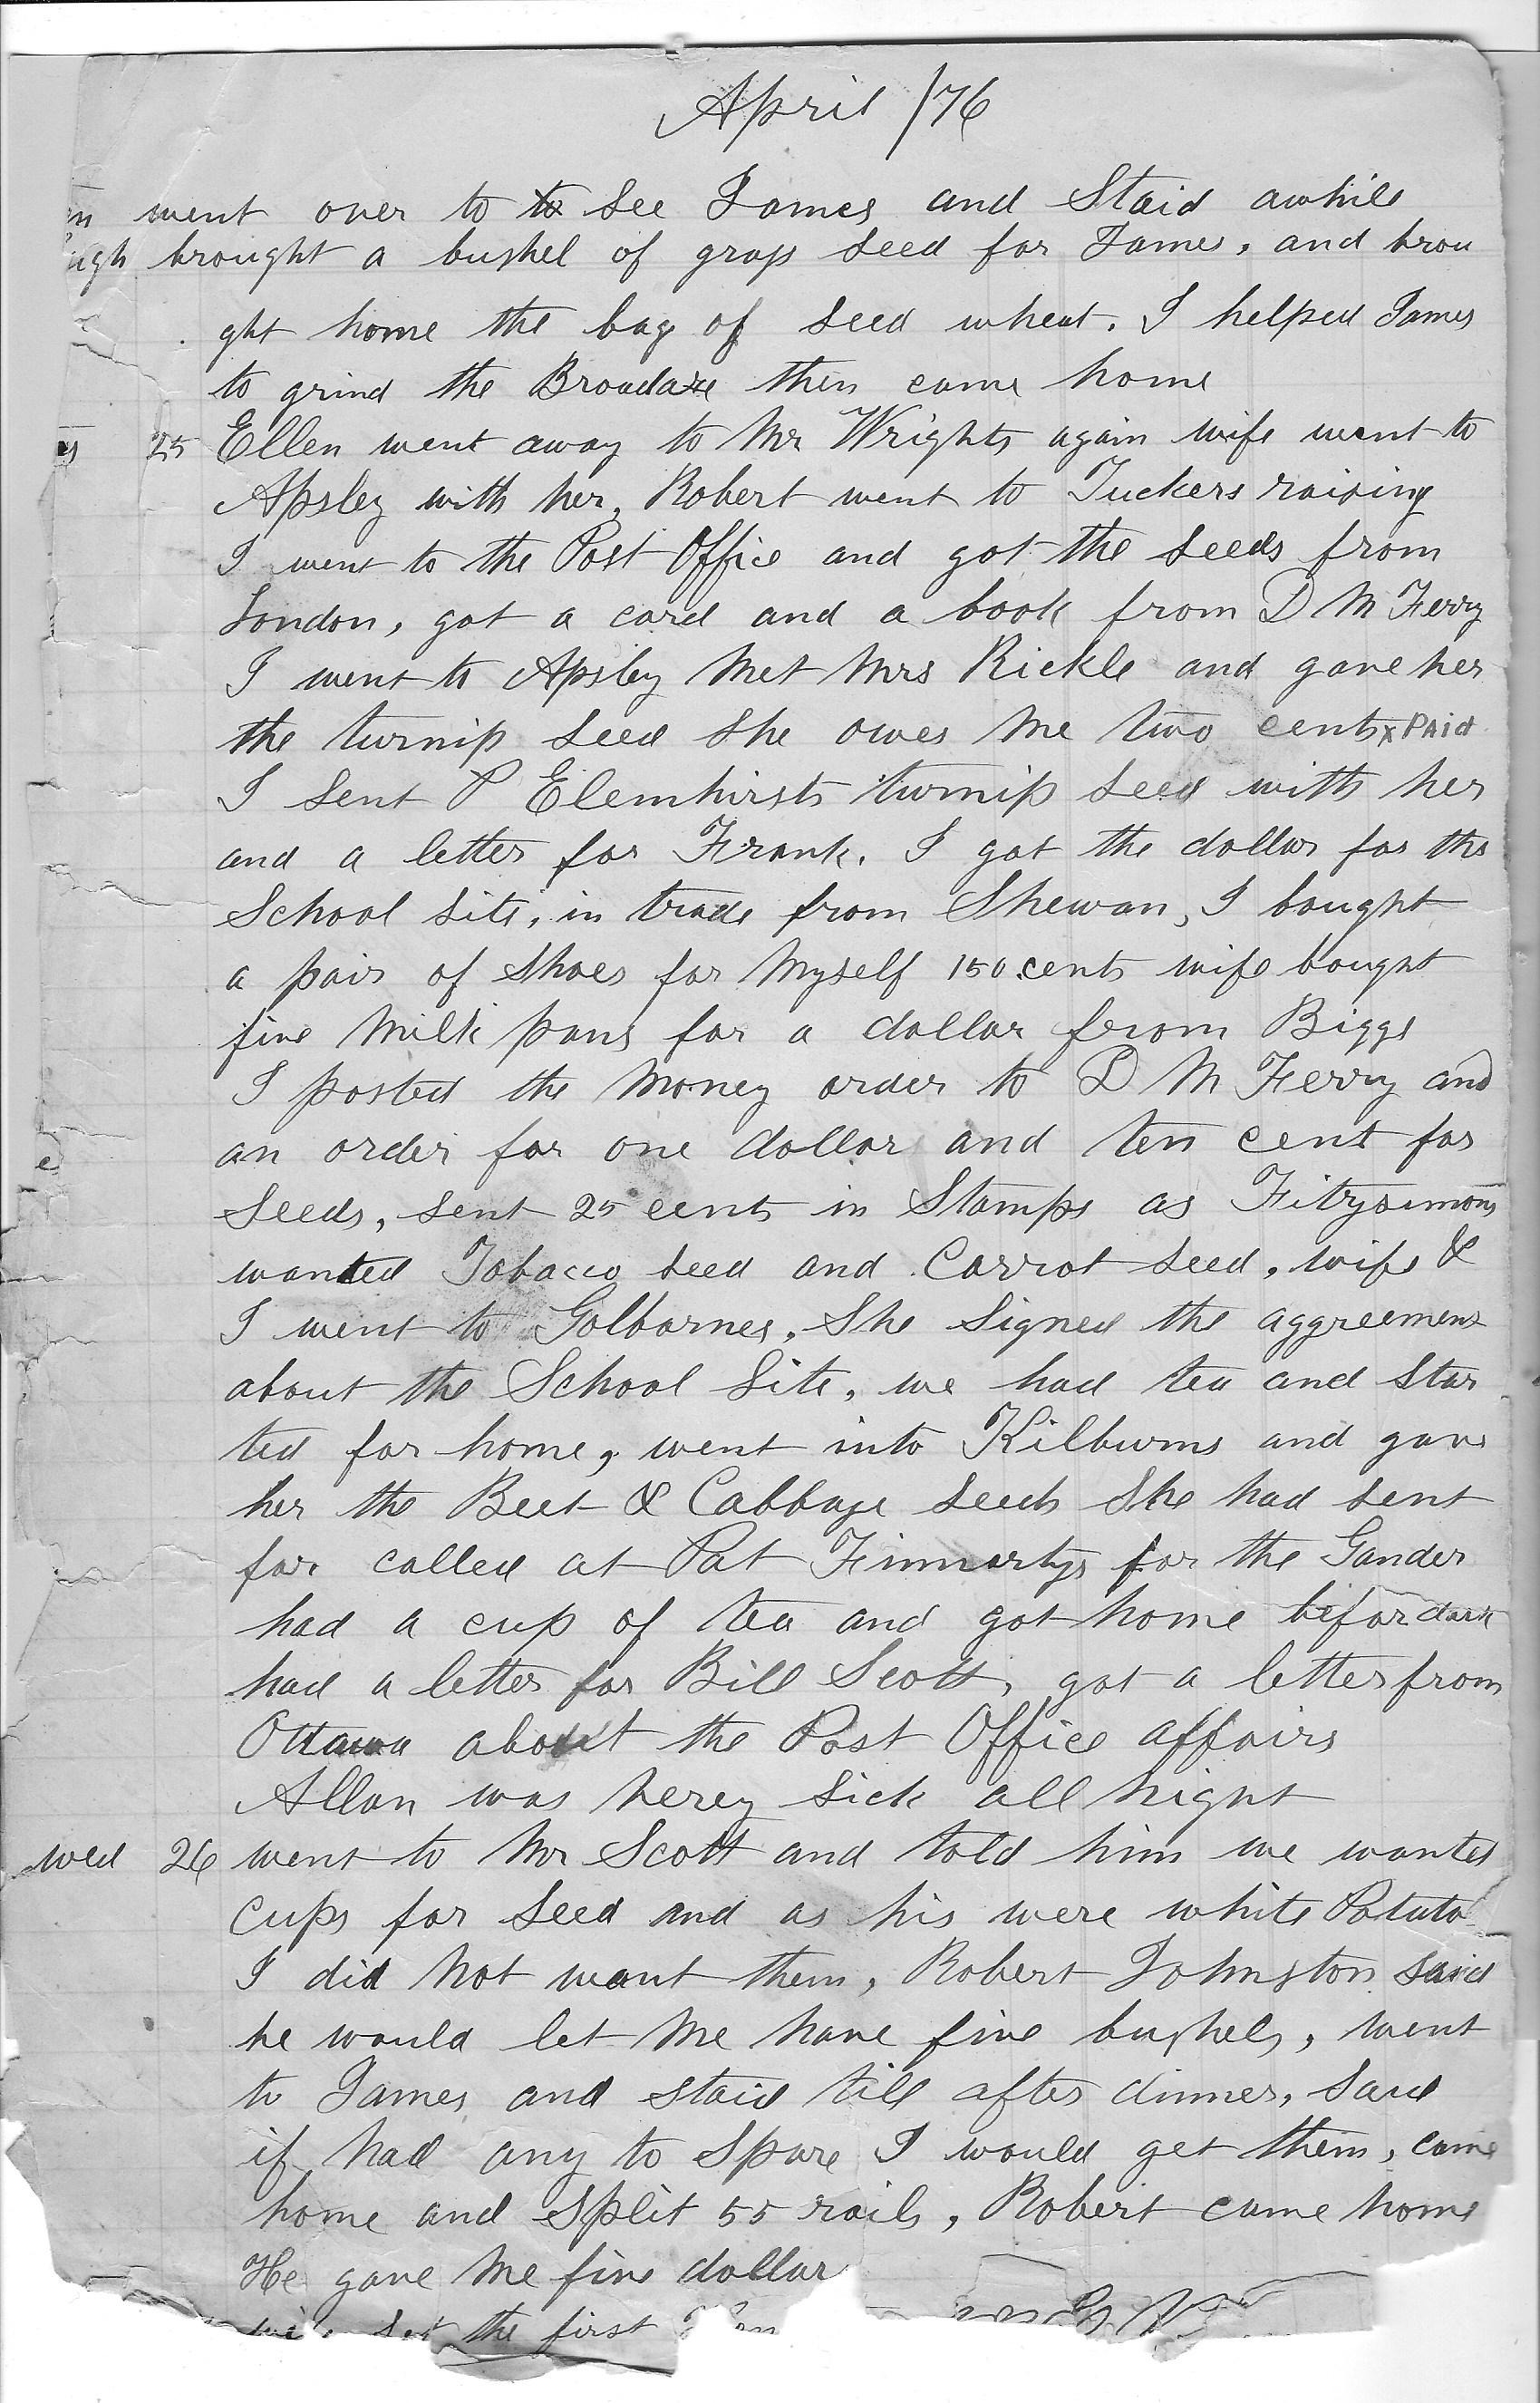 April /76
went over to to see James and Staid awhile
ugh brought a bushel of grass seed for James, and brou
ght home the bag of seed wheat. I helped James
to grind the Broadaxe then came home
25 Ellen went away to Mr Wrights again wife went to
Apsley with her, Robert went to Tuckers raising
I went to the Post Office and got the seeds from
London, got a card and a book from D M Ferry
I went to Apsley Met Mrs Rickle and gave her
the turnip seed She owes Me two cents x PAid
I sent P Elemhirsts turnip seed with her
and a letter for Frank. I got the dollar for the
School site, in trade from Shewan, I bought
a pair of Shoes for Myself 150 cents wife bought
five Milk pans for a dollar from Biggs
I posted the Money order to D M Ferry and
an order for one dollar and ten cent for
Seeds, sent 25 cents in Stamps as Fitzsimons
wanted Tobacco seed and Carrot seed, wife &
I went to Golbornes, She Signed the aggreement
about the School Site, we had tea and Star
ted for home, went into Kilburns and gave
her the Beet & Cabbage seeds She had sent
for called at Pat Finnartys for the Gander
had a cup of tea and got home befor dark
had a letter for Bill Scott, got a letter from
Ottawa about the Post Office affairs
Allan was very Sick all Night
wed 26 went to Mr Scott and told him we wanted
cups for seed and as his were white Potato
I did Not want them, Robert Johnston said
he would let Me have five bushels, went
to James and staid till after dinner, Said
if had any to Spare I would get them, came
home and Split 55 rails, Robert came home
He gave Me five dollar
the first